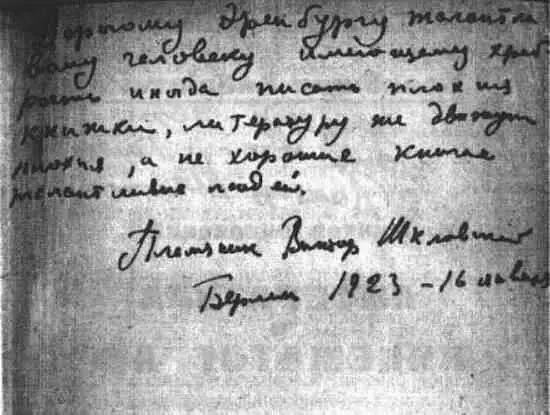 Дорогому Эренбургу талантли
вому человеку имеющему храб
рость иногда писать плохия
книжки, литературу же двигают
плохия, а не хорошие книги
талантливых людей.
Племянник Виктор Шкловский
Берлин 1923 – 16 января